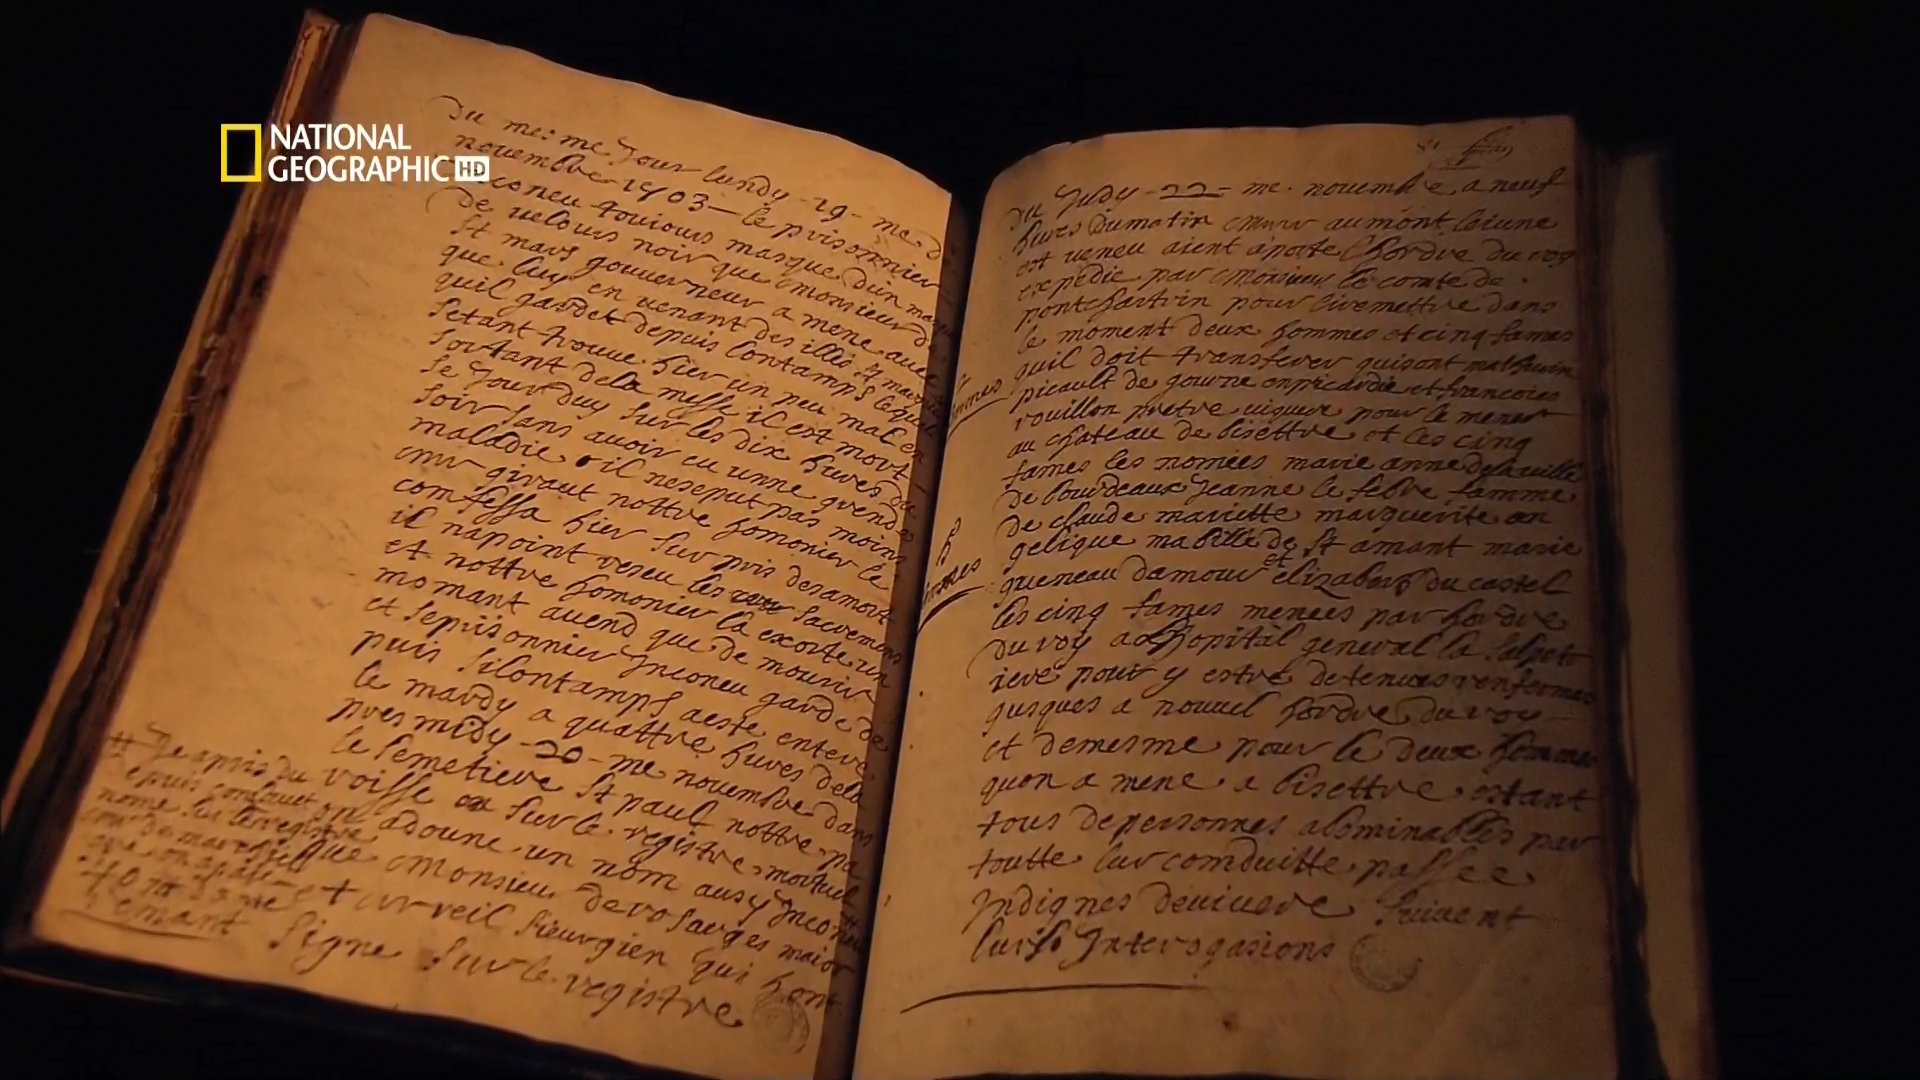 NATIONAL
GEOGRAPHIC HD
Du me: me Jour lundy -19- me d
novembre 1703 — le prisonnier
inconeu toujours masque d'un masque
de velours noir que monsieur de
st mars gouverneur a mene avecque
que luy en venant des illes st marguerite
quil gardet depuis lontamps lequel
setant trouve hier un peu mal en
sortant de la messe il est mort
le jourduy sur les dix hures du
soir sans avoir eu unne grende
maladie il ne se put pas moins
mr giraut nottre homonier le
comfessa hier surpris de sa mort
il na point reseu les sacremens
et nottre homonier la exorte un
momant avend que de mourir
et se prisonnier Inconeu garde de
puis si lontamps a este entere
le mardy a quattre hures de la
pres midy -20- me novembre dans
le semetiere st paul nottre pa
roisse sur le registre mortuel
on a doune un nom ausy Inconeu
que monsieur de rosarges maior
et arreil sieurgien qui hont
signe sur le registre
++ Je apris du
depuis
nome sur le registre
mr de
40 tt
remant
du Judy -22- me novembre a neuf
hures du matin aumont le iune
est veneu aient aporte lhordre du roy
expedie par monsieur le comte de
pontchartrin pour livemettre dans
le moment deux hommes et cinq fames
quil doit transferer qui sont mathurin
picault de gourne en picardie et francois
rouillon pretre viquere pour le mener
au chateau de bisettre et les cinq
fames les nomées marie anne delaville
de bourdeaux Jeanne le febre famme
de claude mariette marguerite an
gelique mabille de st amant marie
grueneau damour et elizabeth du castel
les cinq fames menées par hordre
du roy a lhopital general la salpet
riere pour y estre detenues renfermes
jusques a nouvel hordre du roy
et de mesme pour le deux hommes
quon a mene a bisettre estant
tous de personnes abominables par
toutte lur comduitte passee
Indignes de vivere suivent
lurs Interogasions